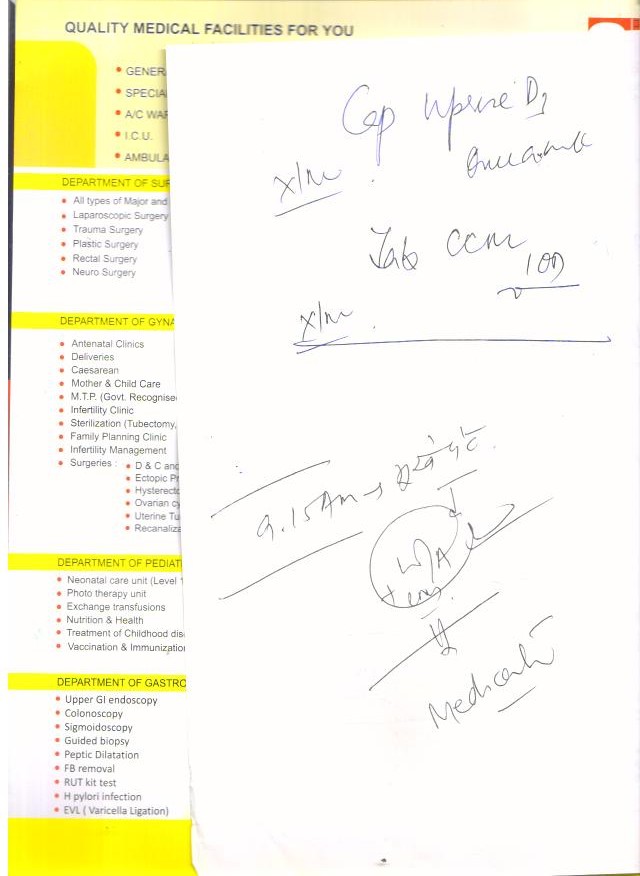 QUALITY MEDICAL FACILITIES FOR YOU
GENER
SPECIA
A/C WAR
I.C.U.
AMBULA
DEPARTMENT OF SUR
All types of Major and
Laparoscopic Surgery
Trauma Surgery
Plastic Surgery
Rectal Surgery
Neuro Surgery
DEPARTMENT OF GYNA
Antenatal Clinics
Deliveries
Caesarean
Mother & Child Care
M.T.P. (Govt. Recognise
Infertility Clinic
Sterilization (Tubectomy,
Family Planning Clinic
Infertility Management
Surgeries : D & C and
Ectopic Pr
Hysterecto
Ovarian cy
Uterine Tu
Recanaliza
DEPARTMENT OF PEDIAT
Neonatal care unit (Level 1
Photo therapy unit
Exchange transfusions
Nutrition & Health
Treatment of Childhood dis
Vaccination & Immunizatio
DEPARTMENT OF GASTRO
Upper GI endoscopy
Colonoscopy
Sigmoidoscopy
Guided biopsy
Peptic Dilatation
FB removal
RUT kit test
H pylori infection
EVL ( Varicella Ligation)
Cap Uprise D3
x/m
Tab CCM
1 OD
x/m
9.15 Am →